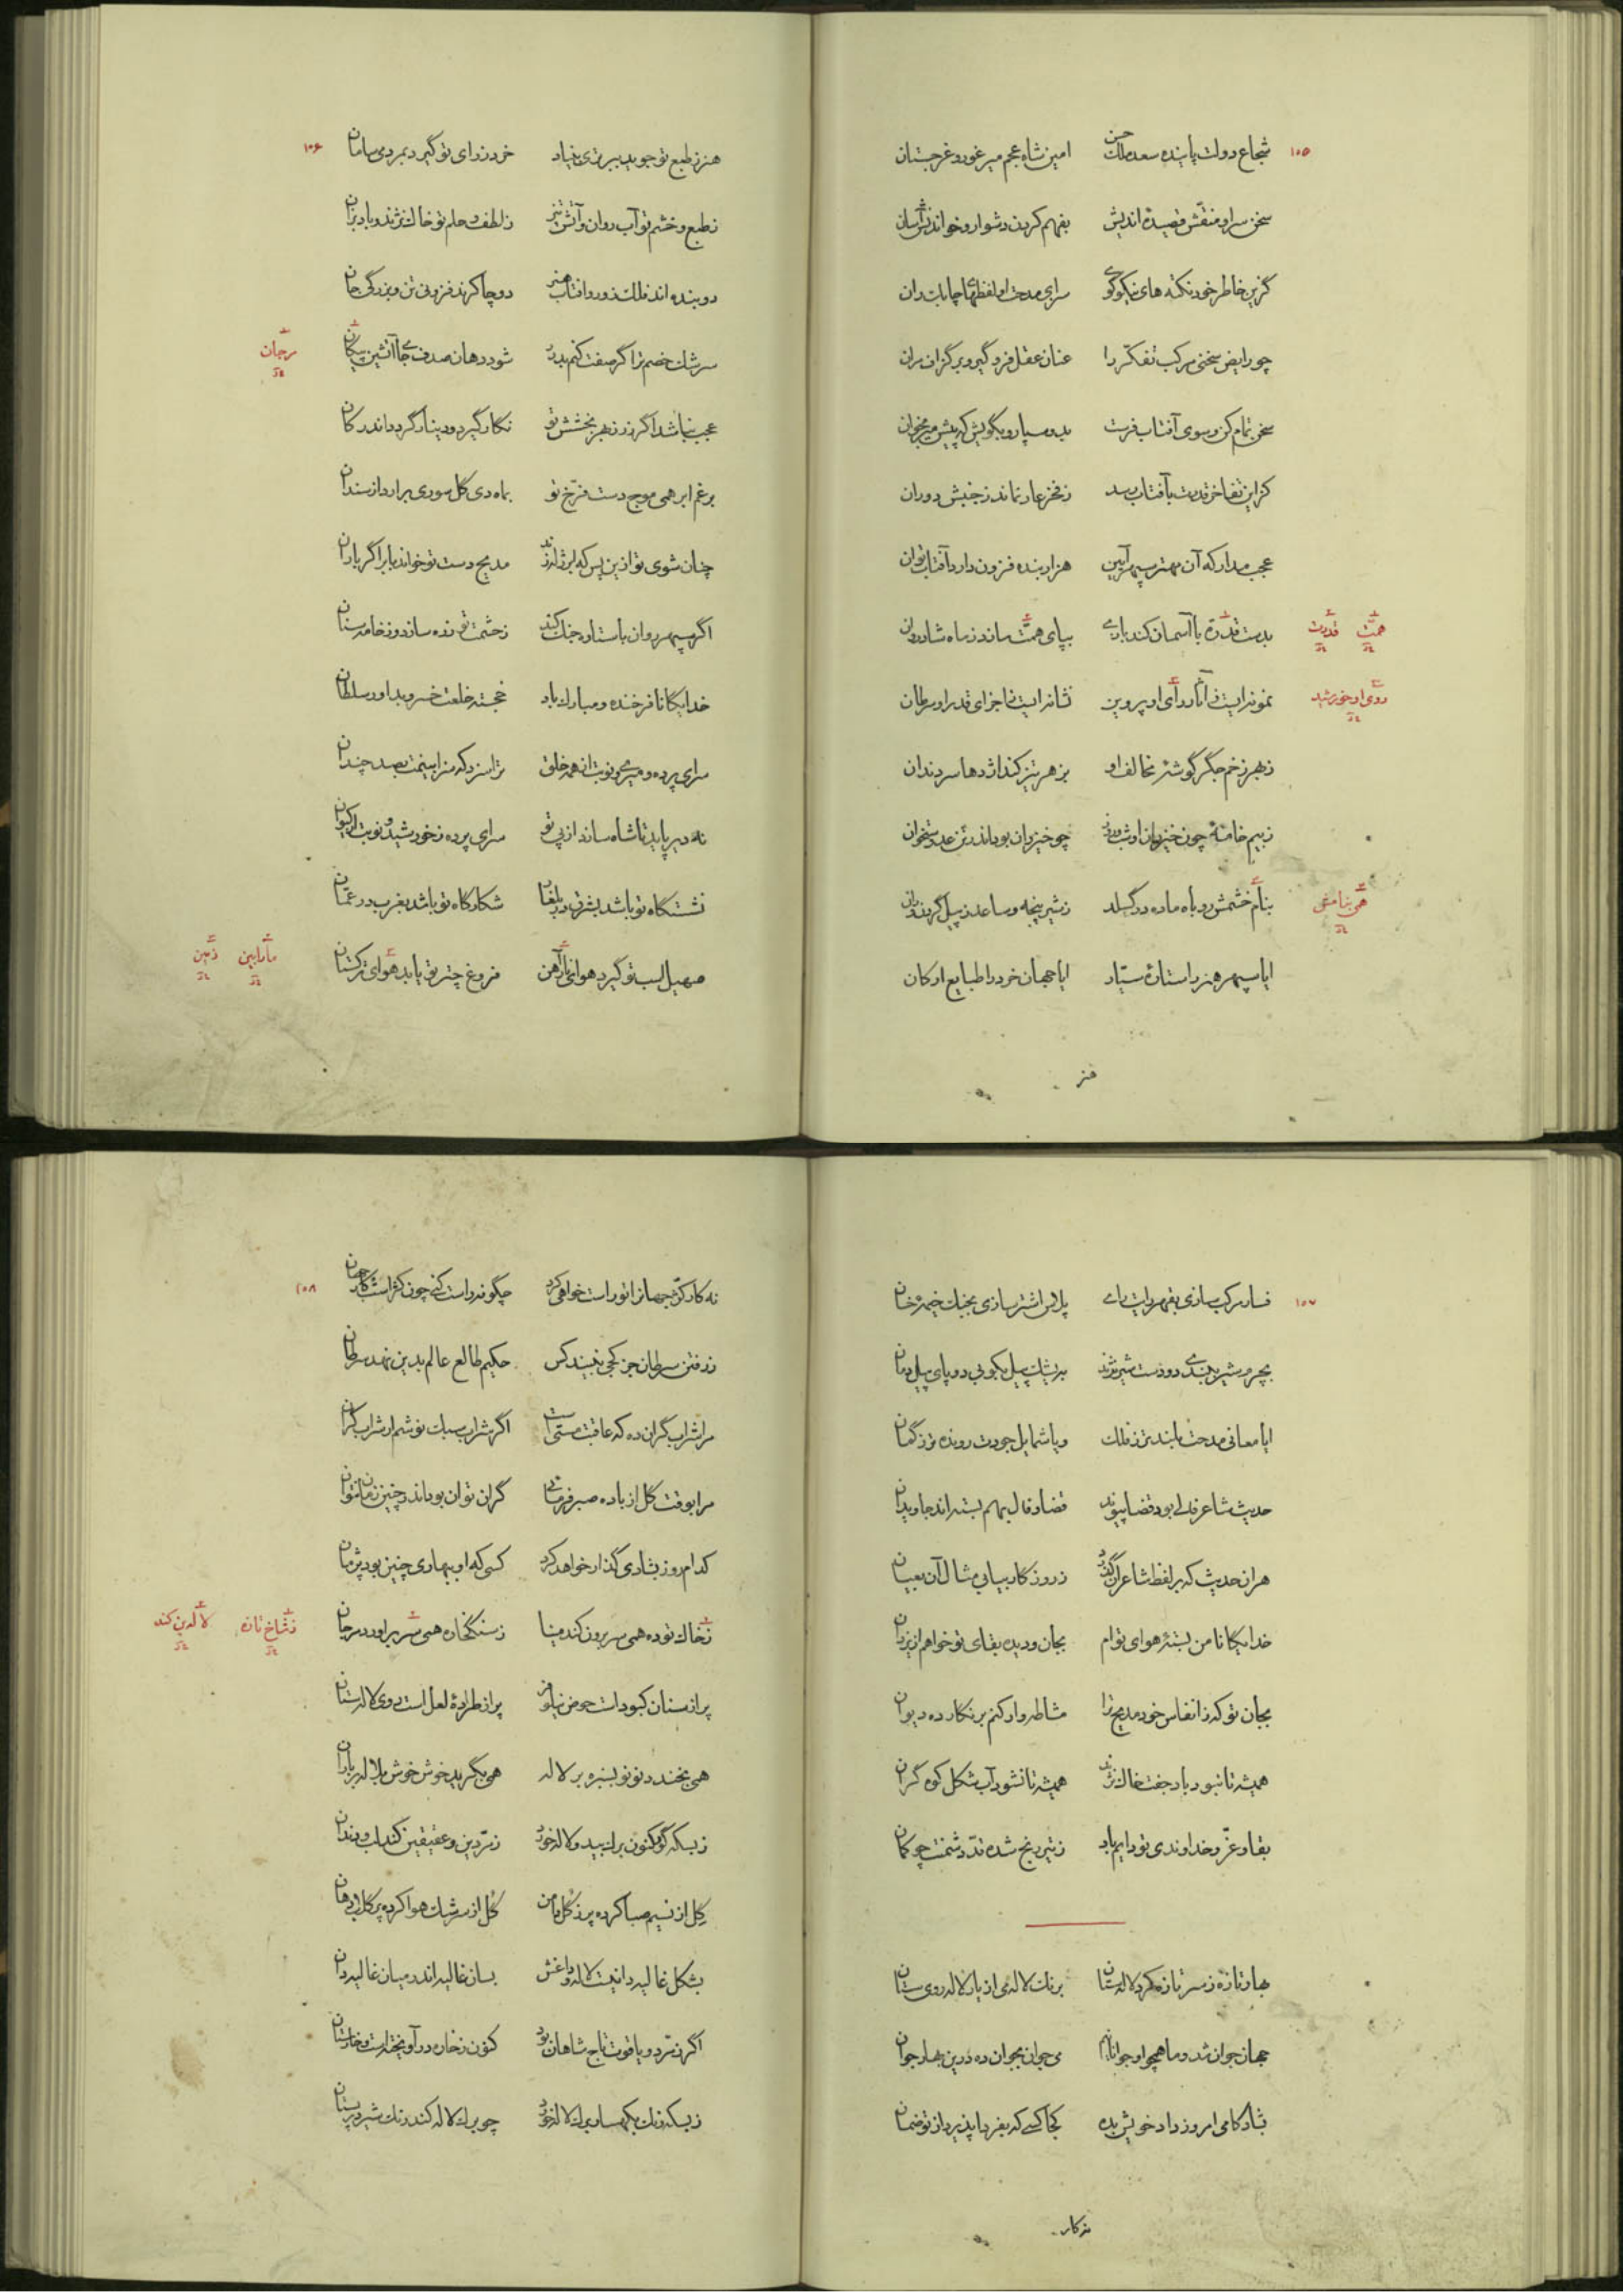 ۱۰۵
شجاع دولت پاینده سعد ملک حسن امین شاه عجم میر غور و غرجستان
سخن سرا و منقش قصیدهٔ اندیش بفهم کردن دشوار و خواندنش آسان
گزین خاطر خود نکته های نیکو گوی سرای مدحت او لفظهای چابک ران
چو رایض سخنی مرکب تفکّر را عنان عقل فرو گیر و بر گزاف مران
سخن تمام کن و سوی آفتاب فرست بدو سپار و بگویش که پیش میر بخوان
کزین تفاخر قدرت بآفتاب رسد ز فخر عار نماند ز جنبش دوران
عجب مدار که آن مهتر سپهر آیین هزار بنده فزون دارد آفتاب توان
بدست قدرت با آسمان کند بازی بپای همّت ساند ز ماه شادروان
همّت قدرت
نمونه ایست ز آثار رأی او پروین نشانه ایست ز اجزای قدر او سرطان
روی او خورشید
ز بهر زخم جگر گوشهٔ مخالف او بزهر تیز کند اژدها سر دندان
ز بیم خامهٔ چون خیزران او شب و روز چو خیزران بود اندر تن عدو ستخوان
بنام خشمش روباه ماده در گسلد ز شیر پنجه و ساعد ز پیل گردن و ران
همی بنا
ایا سپهر هنر را ستارهٔ سیّار ایا جهان خرد را طبایع ارکان
هنر
۱۰۶
هنر ز طبع تو جوید ببرتری بنیاد خرد ز رای تو گیرد بمردمی سامان
ز طبع و خشم تو آب روان و آتش تیز ز لطف و حلم تو خاک نژند و باد بزان
دو بنده اند فلک زور و آفتاب هنر دو چاکرند فزونی تن و بزرگی جان
سرشک خصم ترا گر صفت کنم بدرد شود دهان صدف جای آتشین پیکان
مرجان
عجب نباشد اگر زر ز بهر بخشش تو نگار گیرد و دینار گردد اندر کان
برغم ابر همی موج دست فرّخ تو بماه دی گل سوری برارد از سندان
چنان شوی تو ازین پس که ابر ژاله زند مدیح دست تو خواند بابر اگر باران
اگر سپهر روان باستاره جنگ کند ز حشمت تو زره سازد و ز خامه سنان
خدایگانا فرخنده و مبارک باد خجسته خلعت خسرو بداور سلطان
سرای پرده و میری و نوبت از همه خلق ترا سزد که سزا بینمت بصد چندان
نه دیر پاید تا شاه سازد از پی تو سرای پرده ز خورشید و نوبت از کیوان
نشستگاه تو باشد بشرق در بلغان شکارگاه تو باشد بغرب در عمّان
صهیل اسب تو گیرد هوای فروغ چتر تو یابد هوای ترکستان
زمین
۱۰۷
فسار مرکب سازی بقهر رایت رای پلاس اشتر سازی بجنگ خیمهٔ خان
بچرم شیر ببندی دو دست شیر نژند بیشک پیل بکوبی دو پای پیل دمان
ایا معانی مدحت بلندتر ز فلک و یا شمایل جودت رونده تر ز گمان
حدیث شاعر فالی بود قضا پیوند قضا و فال بهم بسته اند جاویدان
هر آن حدیث که بر لفظ شاعران گذرد ز روزگار بیابی مثال آن بعیان
خدایگانا من بستهٔ هوای توام بجان و دیده بقای تو خواهم از یزدان
بجان تو که ز انفاس خود مدیح ترا مشاطه وار کنم بر نگار ده دیوان
همیشه تا نبود باد جفت خاک نژند همیشه تا نشود آب شکل کوه گران
بقا و عزّ و خداوندی تو دایم باد ز تیر رنج شده قدّ دشمنت چو کمان
بهار تازه ز سر تازه کرد لالستان برنگ لاله می از یار لاله روی ستان
جهان جوان شد و ما همچو او جوانانیم می جوان بجوان ده درین بهار جوان
بشادکامی امروز داد خویش بده کجا کسی که بفردا پذیرد از تو ضمان
نه کار
۱۰۸
نه کار کژّ جهان را تو راست خواهی کرد چگونه راست کنی چون کژ است کار جهان
ز رفتن سرطان جز کجی نبیند کس حکیم طالع عالم بدین نهد سرطان
مرا شراب گران ده که عاقبت مستی است اگر شراب سبک نوشم ار شراب گران
مرا بوقت گل از باده صبر فرمایی گران توان بود اندر چنین زمان نتوان
کدام روز بشادی گذار خواهد کرد کسی که او ببهاری چنین بود پژمان
ز خاک توده همی سر برون کند مینا ز سنگ خاره همی سر برآورد مرجان
ز شاخ تازه لاله دین کند
پر از سنان کبود است حوض نیلوفر پر از طرادهٔ لعل است روی لالستان
همی بخندد نونو بسبزه بر لاله همی بگرید خوش خوش بلاله بر باران
ز بسکه گور کنون برگ بید و لاله خورد زمرّدین و عقیقین کند لب و دندان
گِل از نسیم صبا کرده پر ز گل دامن گُل از سرشک هوا کرده پر گلاب دهان
بشکل غالیه دانیست لاله و داغش بسان غالیه اندر میان غالیه دان
اگر زمرّد و یاقوت تاج شاهان بود کنون ز خاره در آویختست و خارستان
ز بسکه رنگ بکهسار برگ لاله خورد چو برگ لاله کند رنگ شیر در پستان